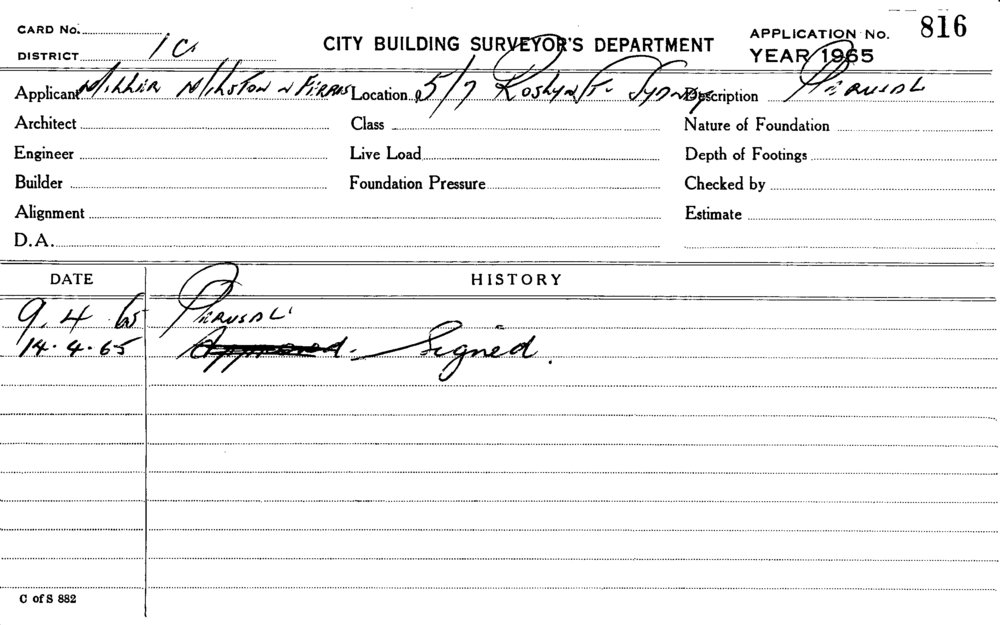 CARD No.
DISTRICT 1C
CITY BUILDING SURVEYOR'S DEPARTMENT
APPLICATION No. 816
YEAR 1965
Applicant Miller Milston & Ferris Location 5/7 Roslyn St. Sydney Description Perusal
Architect Class Nature of Foundation
Engineer Live Load Depth of Footings
Builder Foundation Pressure Checked by
Alignment Estimate
D.A.
DATE HISTORY
9.4.65 Perusal
14.4.65 Approved. Signed.
C of S 882